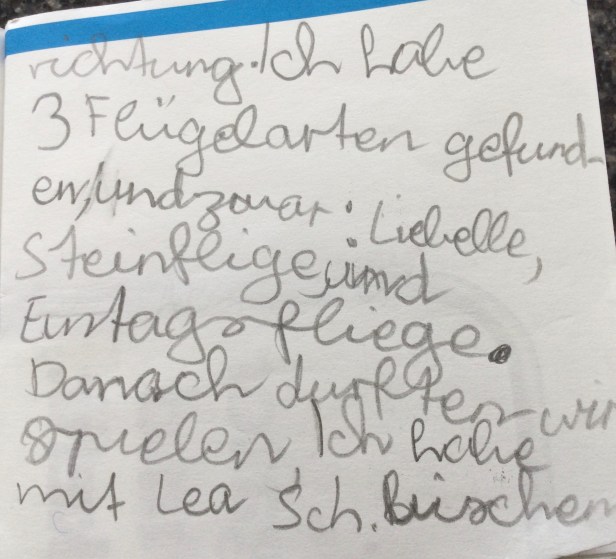 richtung. Ich habe
3 Flügelarten gefund-
en, und zwar: Liebelle,
Steinflige, und
Eintagsfliege.
Danach durften wir
spielen, Ich habe
mit Lea Sch. Büschen